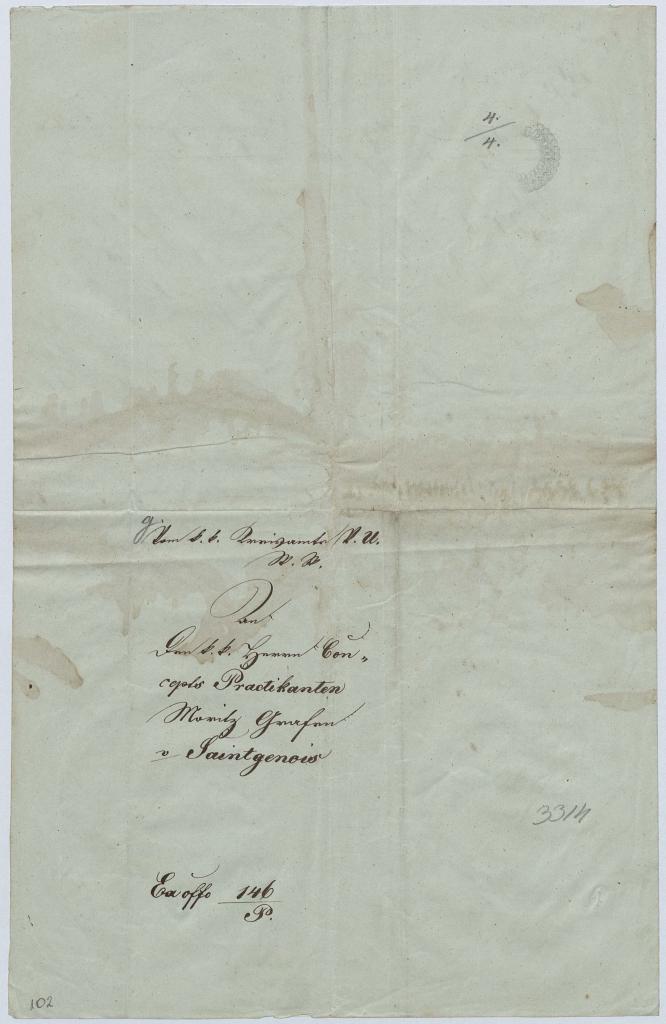 4.
4.
Vom k. k. Kreisamte V. U.
W. W.
An
Den k. k. Herrn Con„
cepts Practikanten
Moritz Grafen
v Saintgenois
Ex offo 146
P.
3314
102